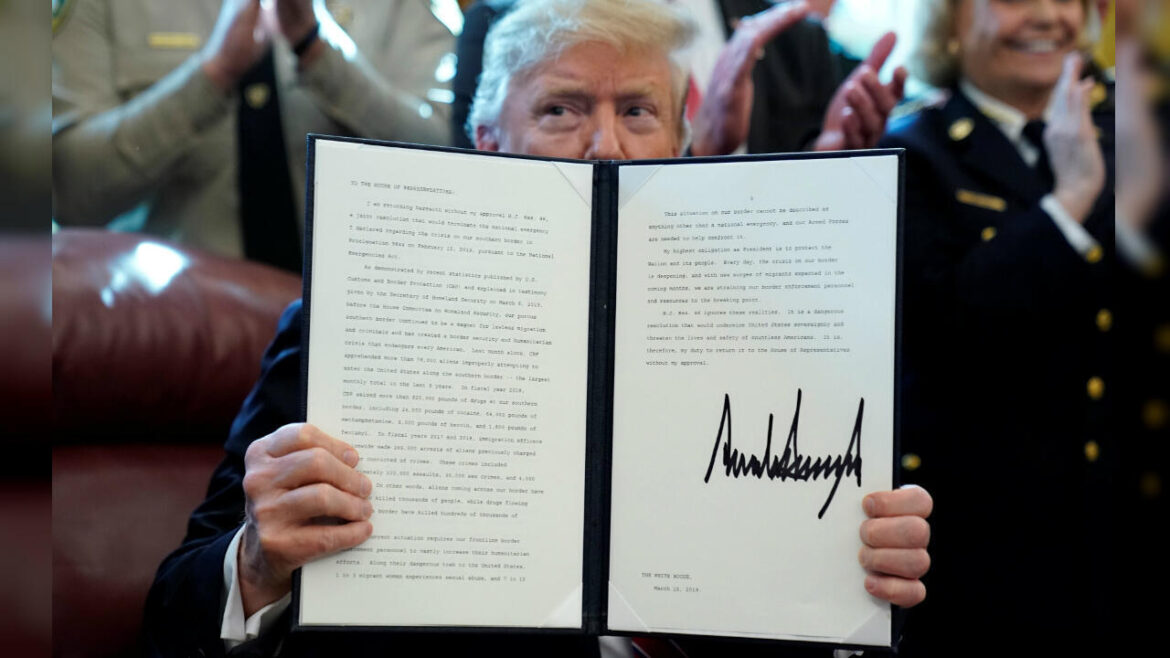 TO THE HOUSE OF REPRESENTATIVES:
I am returning herewith without my approval H.J. Res. 46,
a joint resolution that would terminate the national emergency
I declared regarding the crisis on our southern border in
Proclamation 9844 on February 15, 2019, pursuant to the National
Emergencies Act.
As demonstrated by recent statistics published by U.S.
Customs and Border Protection (CBP) and explained in testimony
given by the Secretary of Homeland Security on March 6, 2019,
before the House Committee on Homeland Security, our porous
southern border continues to be a magnet for lawless migration
and criminals and has created a border security and humanitarian
crisis that endangers every American. Last month alone, CBP
apprehended more than 76,000 aliens improperly attempting to
enter the United States along the southern border -- the largest
monthly total in the last 5 years. In fiscal year 2018,
CBP seized more than 820,000 pounds of drugs at our southern
border, including 24,000 pounds of cocaine, 64,000 pounds of
methamphetamine, 5,000 pounds of heroin, and 1,800 pounds of
fentanyl. In fiscal years 2017 and 2018, immigration officers
nationwide made 266,000 arrests of aliens previously charged
convicted of crimes. These crimes included
100,000 assaults, 30,000 sex crimes, and 4,000
In other words, aliens coming across our border have
killed thousands of people, while drugs flowing
border have killed hundreds of thousands of
situation requires our frontline border
personnel to vastly increase their humanitarian
efforts. Along their dangerous trek to the United States,
1 in 3 migrant women experiences sexual abuse, and 7 in 10
2
This situation on our border cannot be described as
anything other than a national emergency, and our Armed Forces
are needed to help confront it.
My highest obligation as President is to protect the
Nation and its people. Every day, the crisis on our border
is deepening, and with new surges of migrants expected in the
coming months, we are straining our border enforcement personnel
and resources to the breaking point.
H.J. Res. 46 ignores these realities. It is a dangerous
resolution that would undermine United States sovereignty and
threaten the lives and safety of countless Americans. It is,
therefore, my duty to return it to the House of Representatives
without my approval.
THE WHITE HOUSE,
March 15, 2019